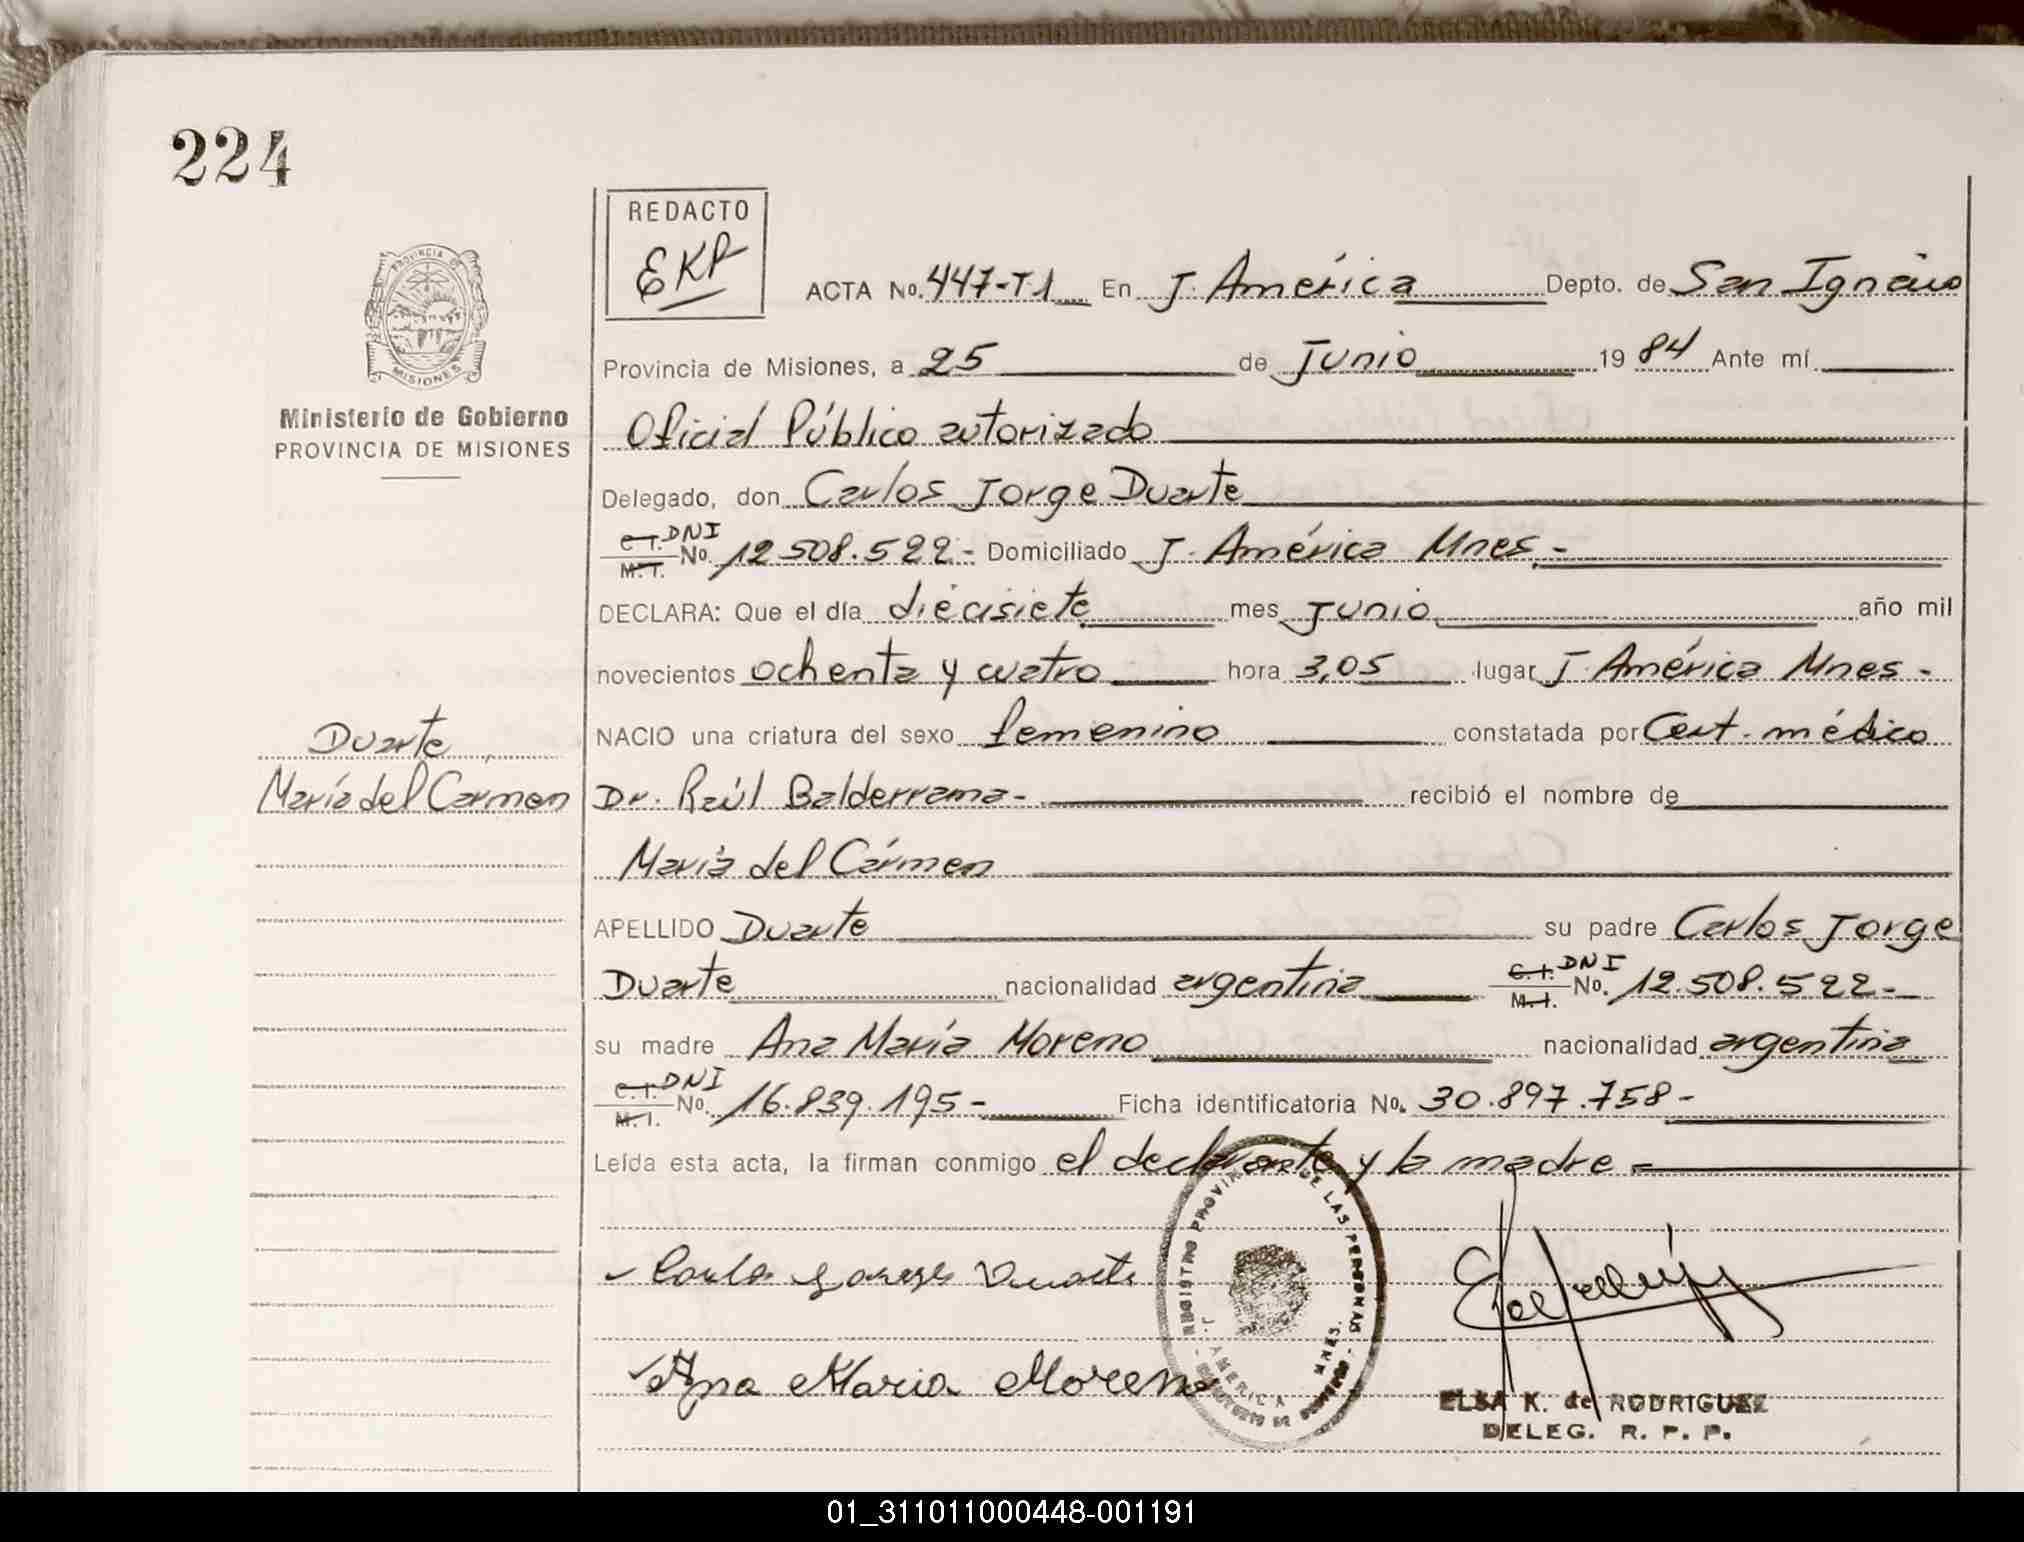 224
REDACTO
EKR
PROVINCIA DE
MISIONES
Ministerio de Gobierno
PROVINCIA DE MISIONES
ACTA No. 447-T1 En J. América Depto. de San Ignacio
Provincia de Misiones, a 25 de Junio 19 84 Ante mí
Oficial Público autorizado
Delegado, don Carlos Jorge Duarte
C.I. DNI
M.I. No. 12.508.522.- Domiciliado J. América Mnes.-
DECLARA: Que el día diécisiete mes Junio año mil
novecientos ochenta y cuatro hora 3,05 lugar J. América Mnes-
Duarte
María del Carmen
NACIO una criatura del sexo femenino constatada por Cert. médico
Dr. Raúl Balderrama- recibió el nombre de
María del Cármen
APELLIDO Duarte su padre Carlos Jorge
Duarte nacionalidad argentina C.I. DNI M.I. No. 12.508.522-
su madre Ana María Moreno nacionalidad argentina
C.I. DNI
M.I. No. 16.839.195- Ficha identificatoria No. 30.897.758-
Leída esta acta, la firman conmigo el declarante y la madre-
REGISTRO DE LAS PERSONAS
J. AMERICA MNES.
Duarte
Ana Maria Moreno
ELSA K. de RODRIGUEZ
DELEG. R. P. P.
01_311011000448-001191